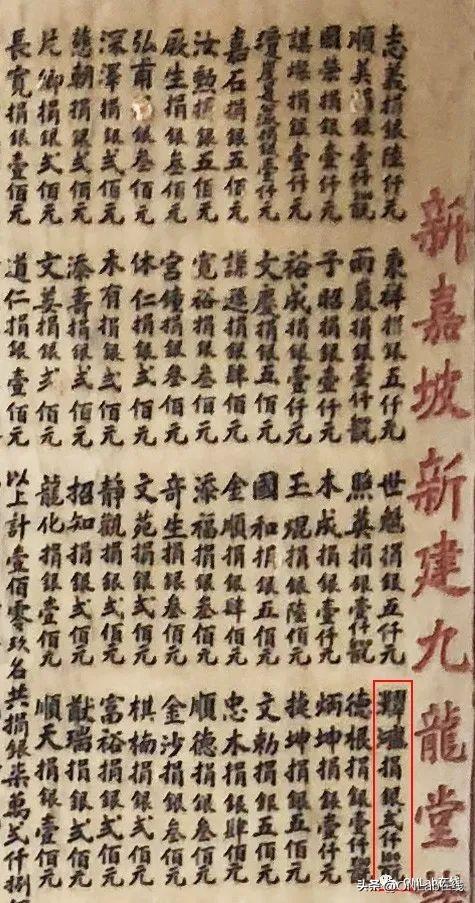 新嘉坡新建九龍堂
志義捐銀陸仟元 秉祥捐銀五仟元 世魁捐銀五仟元 捐銀弍仟
順美捐銀壹仟 雨嚴捐銀壹仟 照英捐銀壹仟 德根捐銀壹仟
國榮捐銀壹仟元 子昭捐銀壹仟元 木成捐銀壹仟元 炳坤捐銀壹仟元
謀燦捐銀壹仟元 裕成捐銀壹仟元 玉焜捐銀陸佰元 捷坤捐銀五佰元
捐銀壹仟元 文慶捐銀五佰元 國和捐銀五佰元 文勅捐銀五佰元
嘉石捐銀五佰元 謙遜捐銀肆佰元 金順捐銀肆佰元 忠木捐銀肆佰元
汝勲捐銀五佰元 寬裕捐銀叁佰元 添福捐銀叁佰元 順德捐銀叁佰元
啟生捐銀叁佰元 宮鐘捐銀叁佰元 奇生捐銀叁佰元 金沙捐銀叁佰元
弘甫 銀叁佰元 休仁捐銀弍佰元 文苑捐銀弍佰元 棋楠捐銀弍佰元
深澤捐銀弍佰元 木有捐銀弍佰元 靜觀捐銀弍佰元 富裕捐銀弍佰元
慈朝捐銀弍佰元 添壽捐銀弍佰元 招知捐銀弍佰元 猷瑞捐銀弍佰元
片卿捐銀弍佰元 文捐銀弍佰元 龍化捐銀壹佰元 順天捐銀壹佰元
長寬捐銀壹佰元 道仁捐銀壹佰元 以上計壹佰零玖名共捐銀柒萬弍仟捌
头条 @ONLab在线